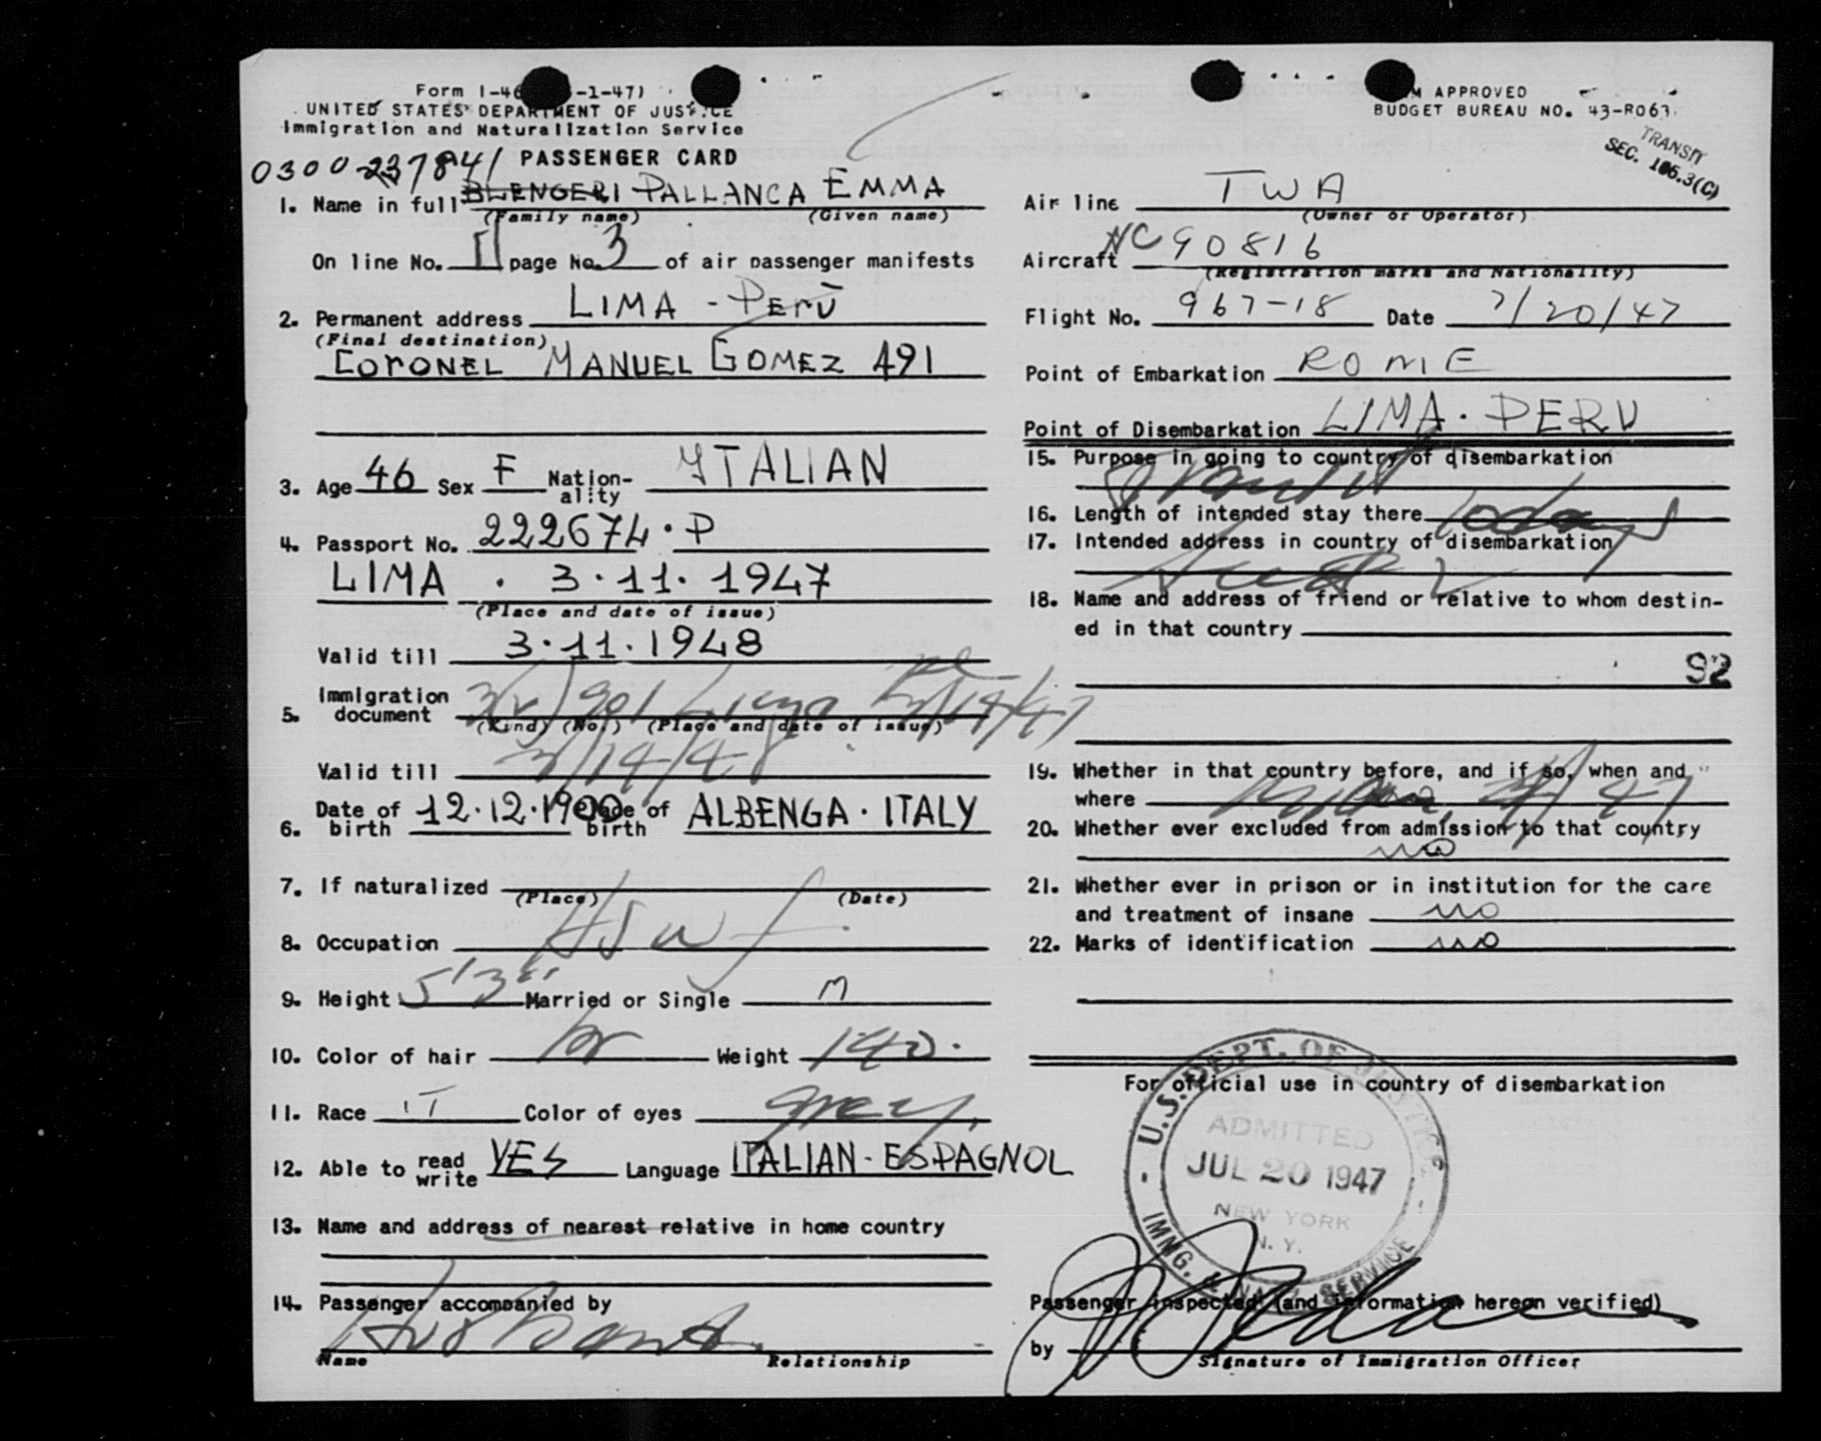 Form I-46 -1-47)
UNITED STATES DEPARTMENT OF JUSTICE
Immigration and Naturalization Service
PASSENGER CARD
1. Name in full BLENGERI PALLANCA EMMA
(Family name) (Given name)
On line No. 11 page No. 3 of air passenger manifests
2. Permanent address LIMA - PERÙ
(Final destination)
CORONEL MANUEL GOMEZ 491
3. Age 46 Sex F Nation-ality YTALIAN
4. Passport No. 222674 · P
LIMA . 3·11·1947
(Place and date of issue)
Valid till 3·11·1948
5. Immigration document 901 Lima 3/14/47
(Kind) (No.) (Place and date of issue)
Valid till 3/14/48
6. Date of birth 12·12·1900 Place of birth ALBENGA · ITALY
7. If naturalized
(Place) (Date)
8. Occupation Hswf
9. Height 5'3" Married or Single M
10. Color of hair br Weight 140.
11. Race IT Color of eyes grey
12. Able to read write YES Language ITALIAN - ESPAGNOL
13. Name and address of nearest relative in home country
14. Passenger accompanied by
Husband
Name Relationship
FORM APPROVED
BUDGET BUREAU NO. 43-R063
TRANSIT
SEC. 106.3(C)
Air line TWA
(Owner or Operator)
Aircraft NC 90816
(Registration marks and Nationality)
Flight No. 967-18 Date 7/20/47
Point of Embarkation ROME
Point of Disembarkation LIMA · PERU
15. Purpose in going to country of disembarkation
Transit
16. Length of intended stay there days
17. Intended address in country of disembarkation
18. Name and address of friend or relative to whom destin-
ed in that country
92
19. Whether in that country before, and if so, when and
where Miami, 47
20. Whether ever excluded from admission to that country
no
21. Whether ever in prison or in institution for the care
and treatment of insane no
22. Marks of identification no
For official use in country of disembarkation
U.S. DEPT. OF JUSTICE
ADMITTED
JUL 20 1947
NEW YORK
N.Y.
IMMG. & NATZ. SERVICE
Passenger inspected (and information hereon verified)
by
Signature of Immigration Officer